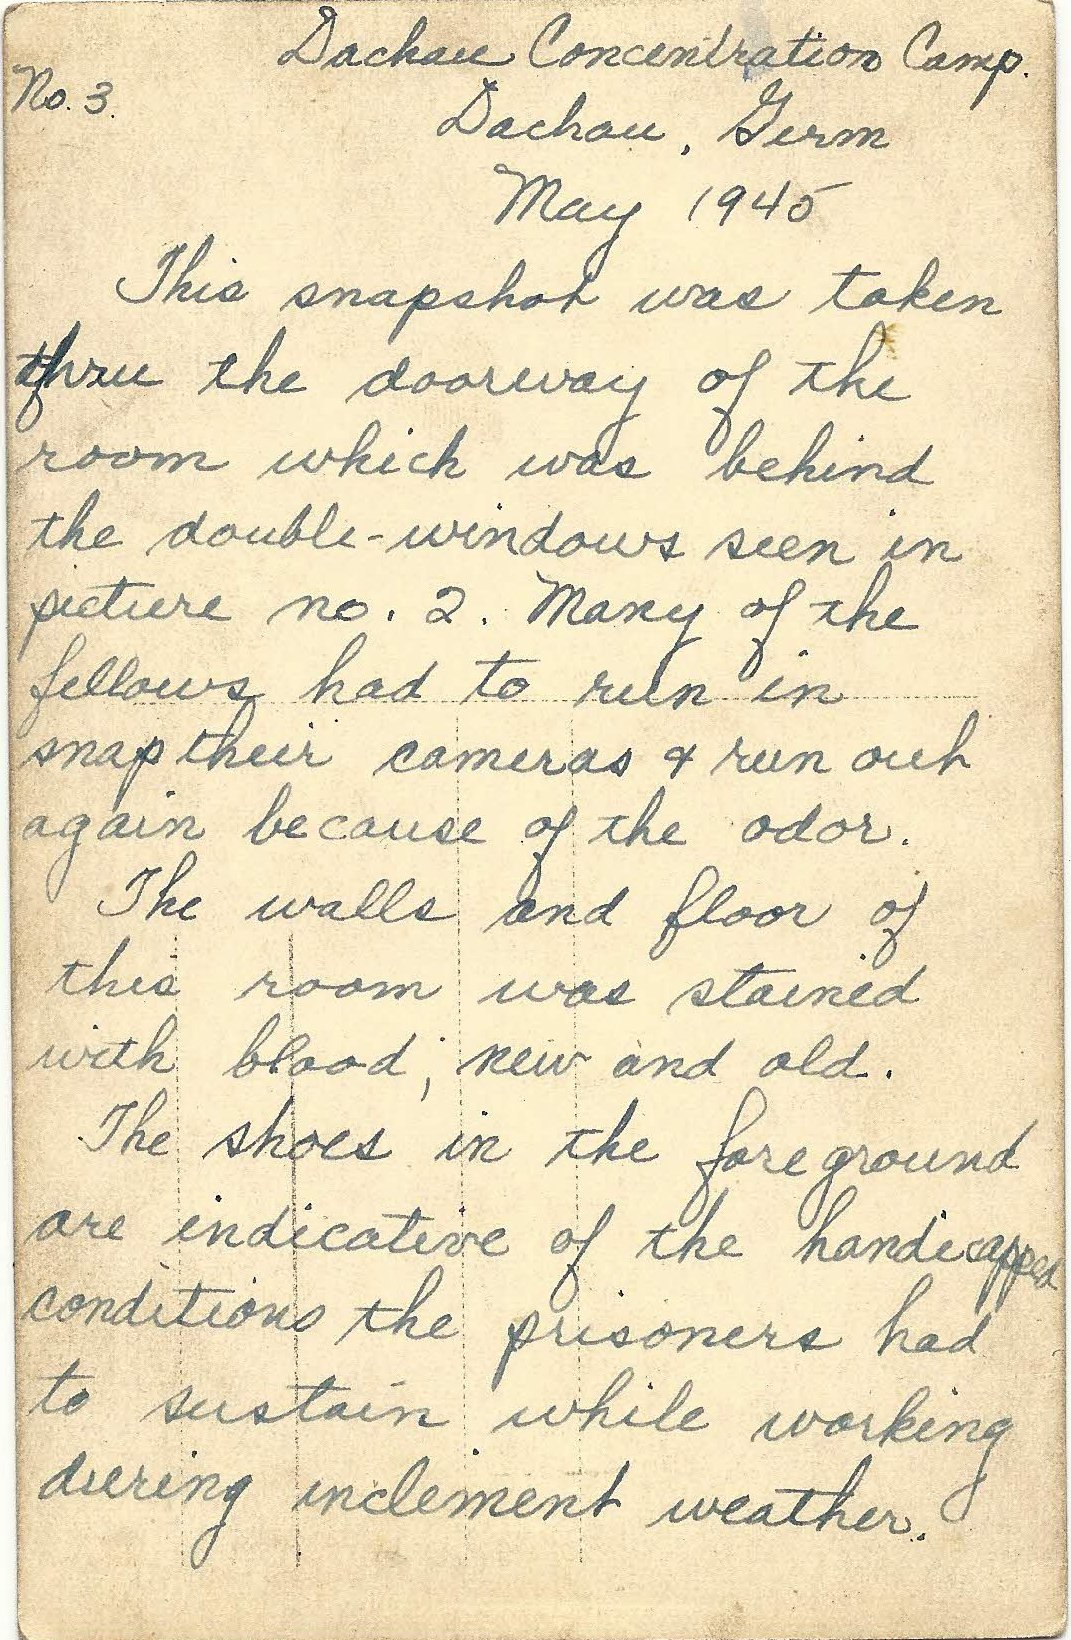 Dachau Concentration Camp.
No. 3.
Dachau, Germ
May 1945
This snapshot was taken
thru the doorway of the
room which was behind
the double-windows seen in
picture no. 2. Many of the
fellows had to run in
snap their cameras & run out
again because of the odor.
The walls and floor of
this room was stained
with blood; new and old.
The shoes in the foreground
are indicative of the handicapped
conditions the prisoners had
to sustain while working
during inclement weather.